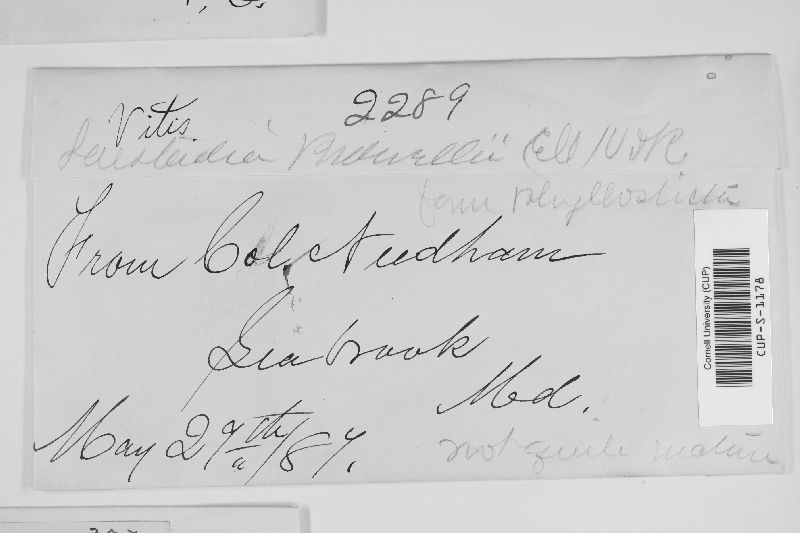 2289
Vitis
Laestadia Bidwellii (Ell) V & R
form Phyllosticta
From Col. Needham
Seabrook
Md.
May 29th/87.
not quite mature
Cornell University (CUP)
CUP-S-1178